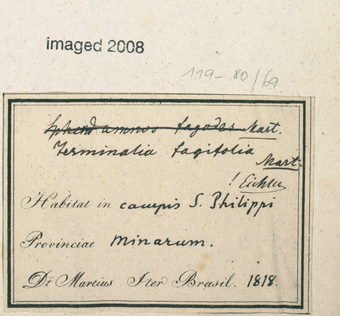 imaged 2008
119-80/69
Terminalia fagifolia
Mart.
! Eichler
Habitat in campis S. Philippi
Provinciae Minarum.
Dr Martius Iter Brasil. 1818.